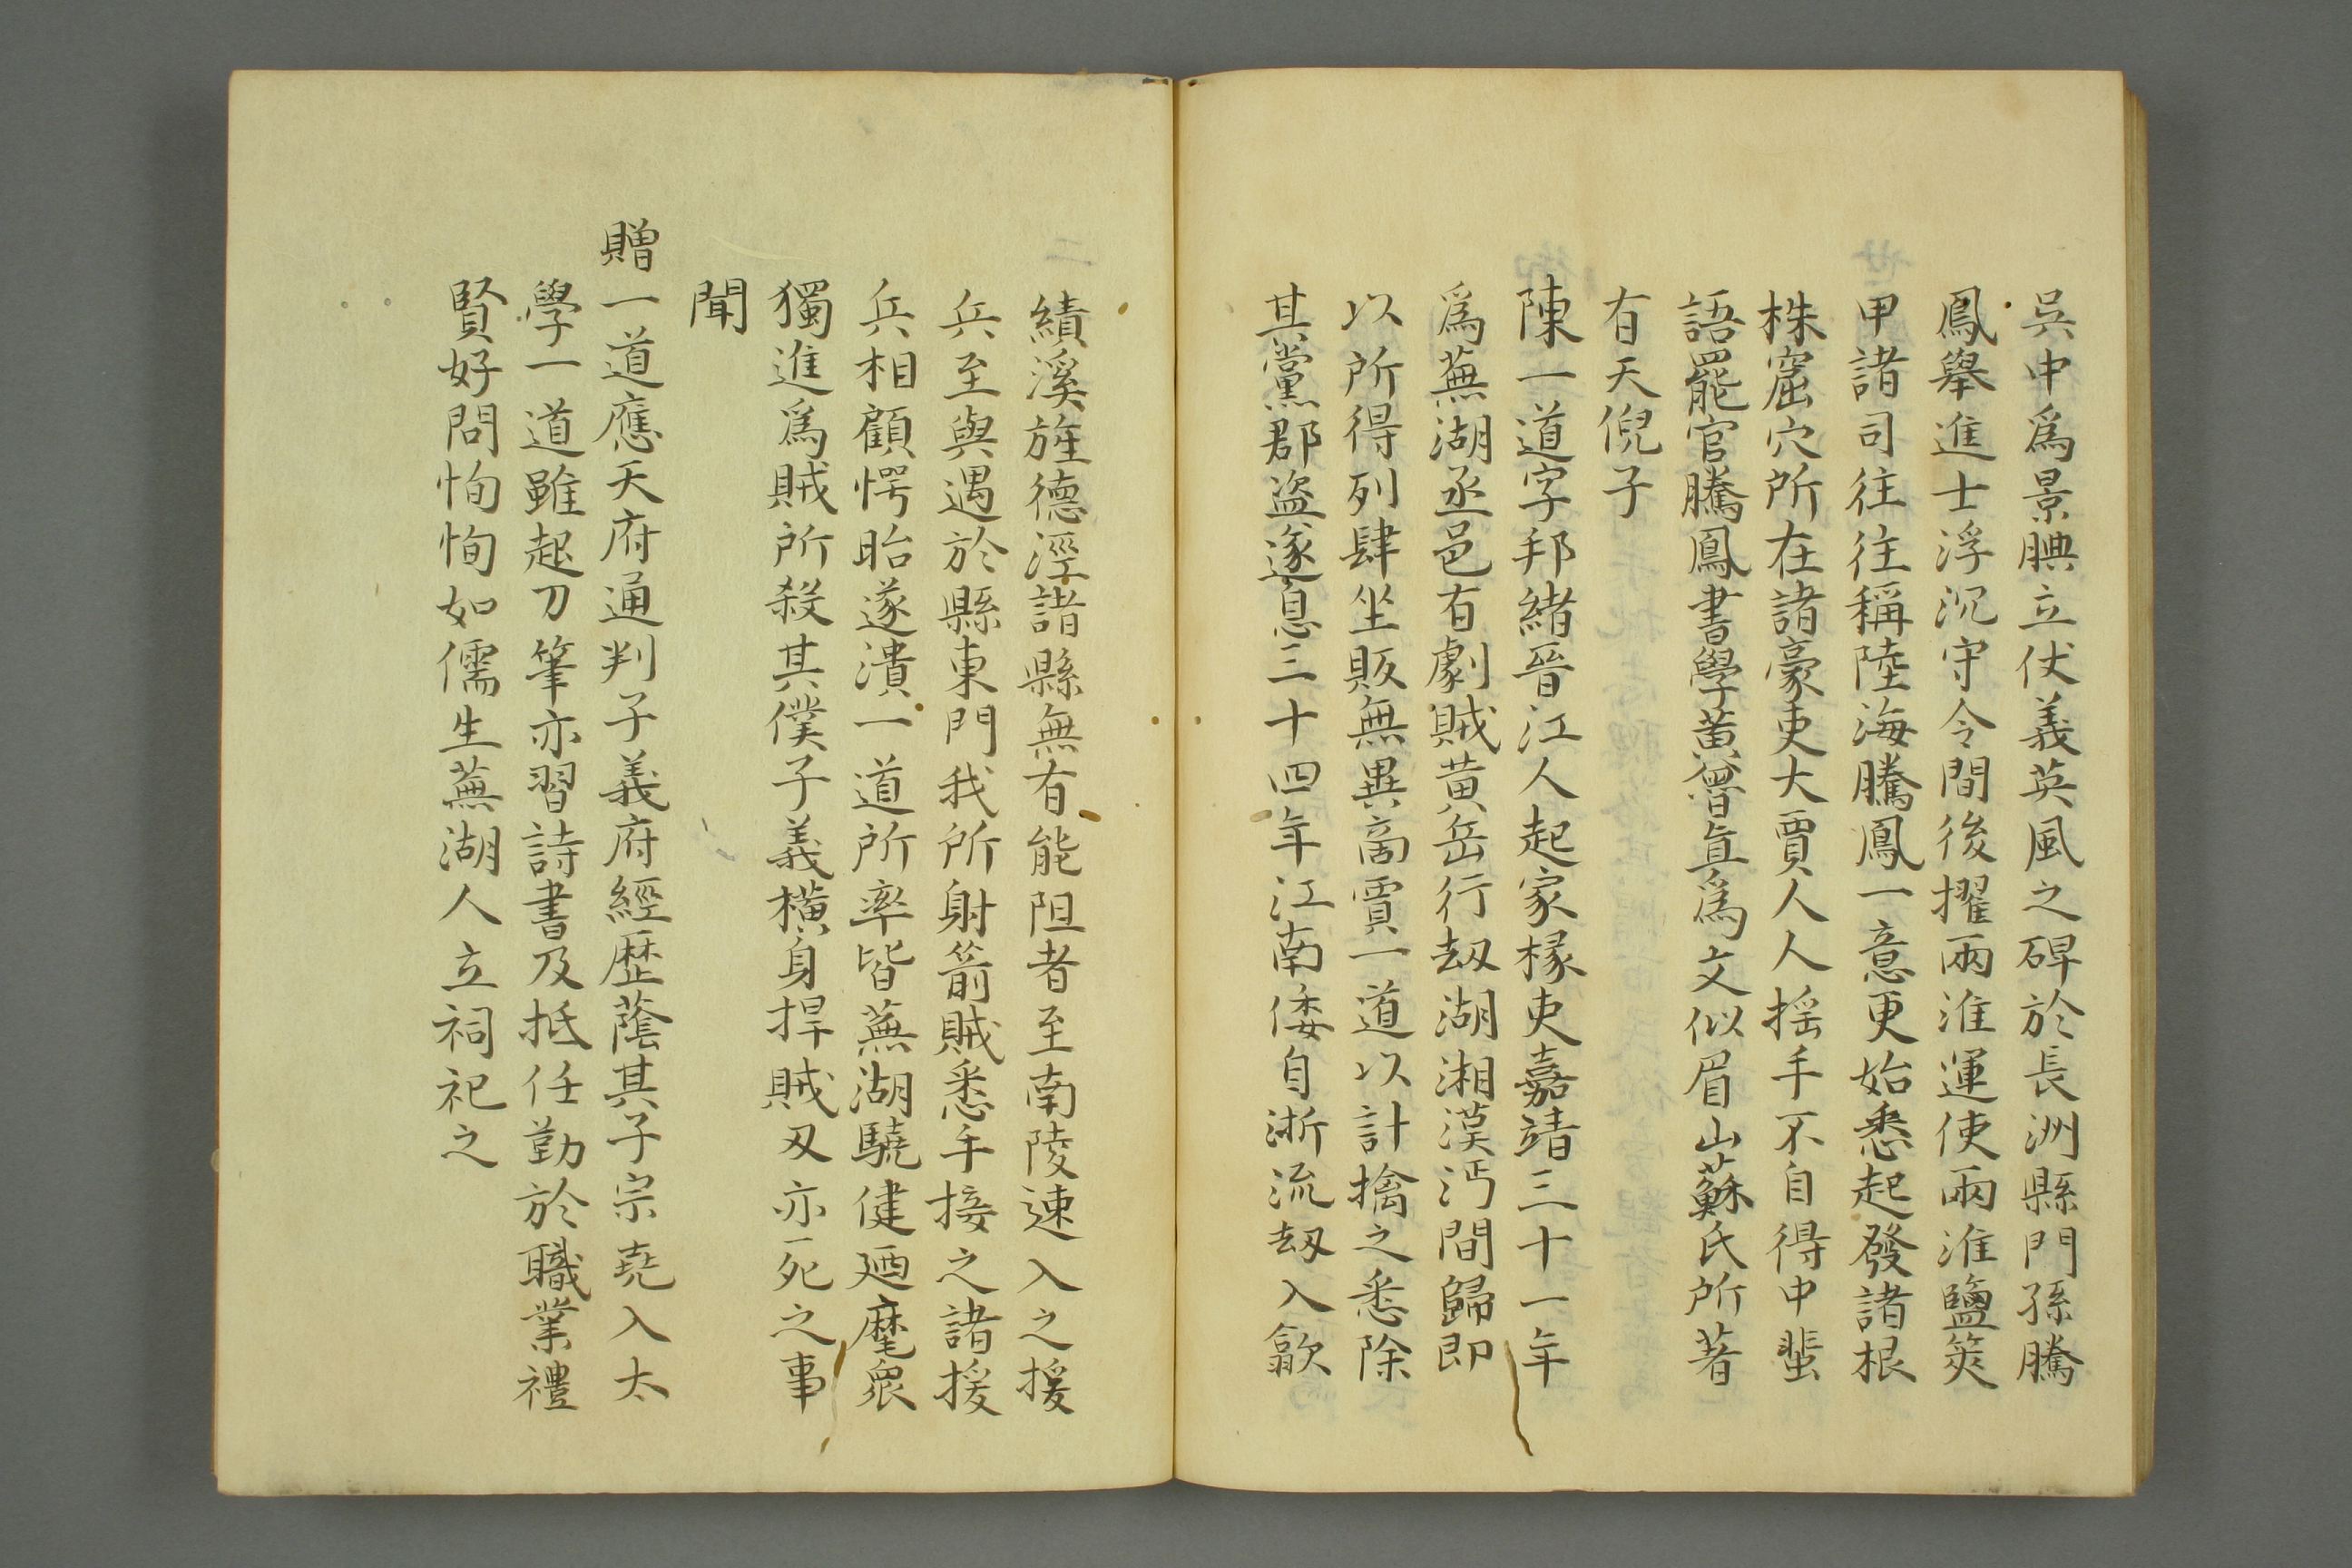 吳中爲景腆立仗義英風之碑於長洲縣門孫騰
鳳舉進士浮沉守令間後擢兩淮運使兩淮鹽筴
甲諸司往往稱陸海騰鳳一意更始悉起發諸根
株窟穴所在諸豪吏大賈人人搖手不自得中蜚
語罷官騰鳳書學黃魯直爲文似眉山蘇氏所著
有天倪子
陳一道字邦緒晉江人起家椽吏嘉靖三十一年
爲蕪湖丞邑有劇賊黃岳行刼湖湘漢沔間歸即
以所得列肆坐販無異啇賈一道以計擒之悉除
其黨郡盜遂息三十四年江南倭自浙流刼入歙
績溪旌德涇諸縣無有能阻者至南陵速入之援
兵至與遇於縣東門我所射箭賊悉手接之諸援
兵相顧愕眙遂潰一道所率皆蕪湖驍健廼麾衆
獨進爲賊所殺其僕子義橫身捍賊刄亦死之事
聞
贈一道應天府通判子義府經歷蔭其子宗堯入太
學一道雖起刀筆亦習詩書及抵任勤於職業禮
賢好問恂恂如儒生蕪湖人立祠祀之